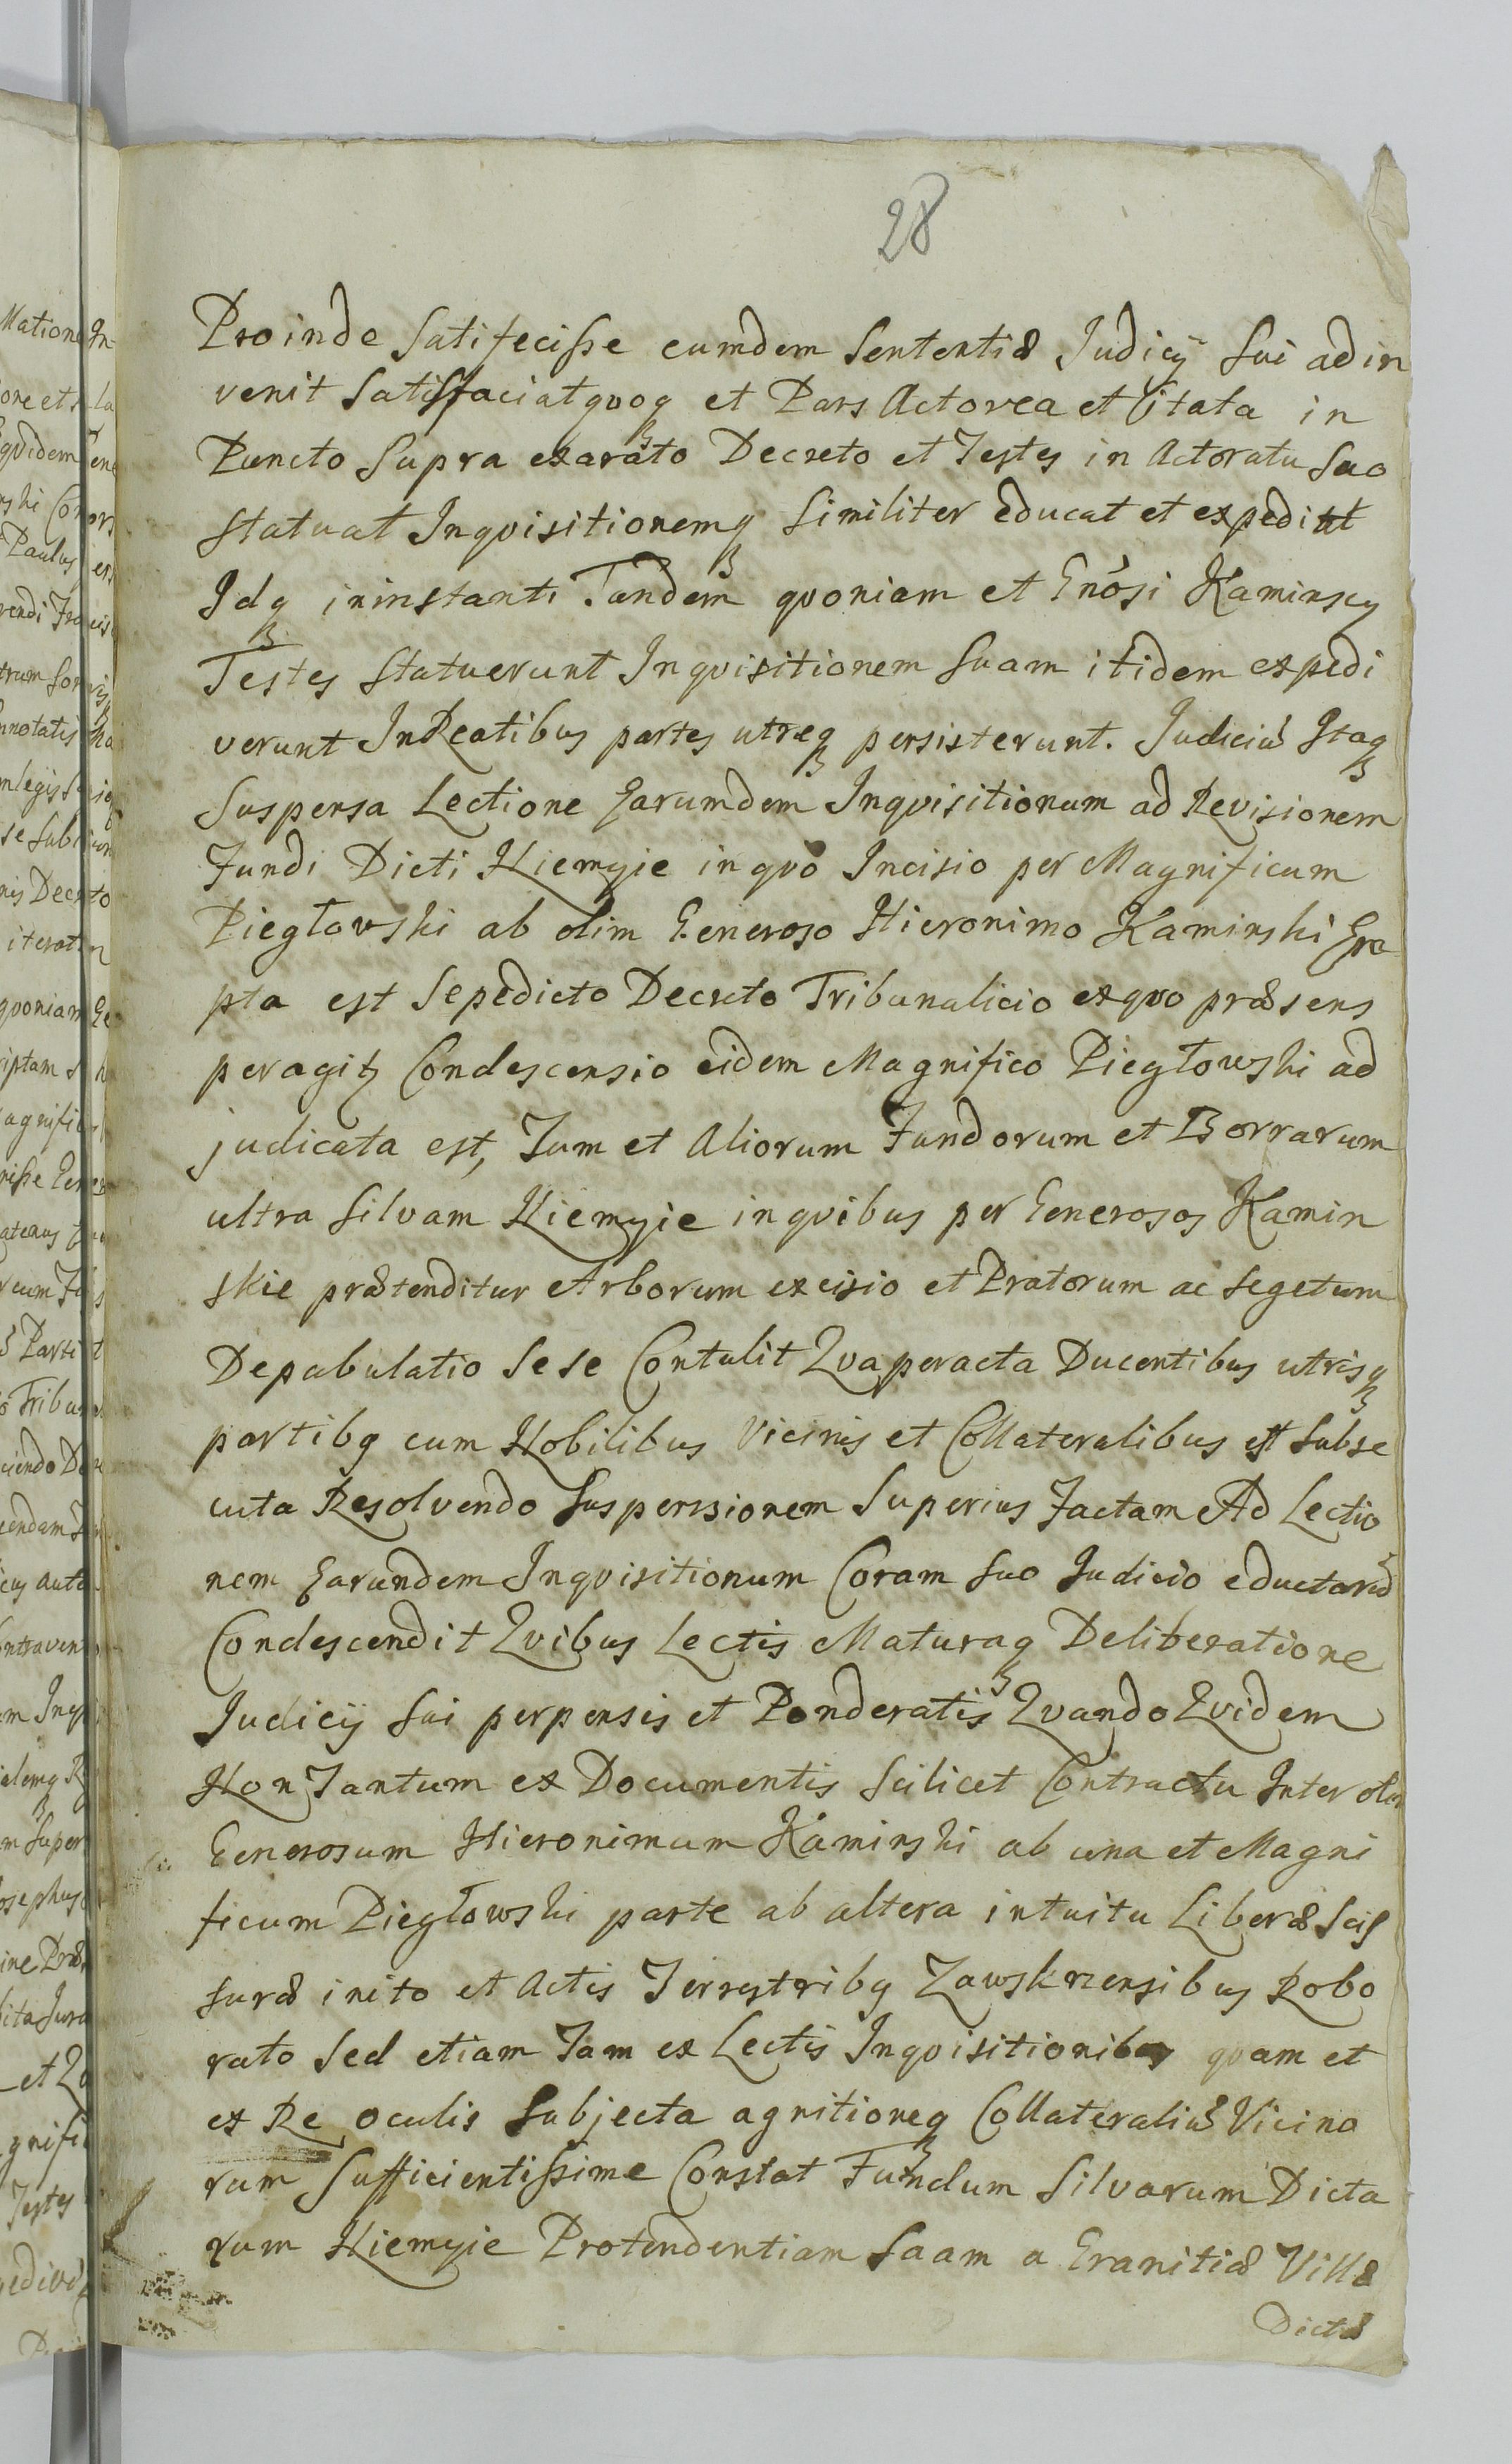 28
Proinde Satisfecisse eumdem Sententiæ Judicÿ Sui adin
venit Satisfaciatqvoq₃ et Pars Actorea et Citata in
Puncto Supra exarato Decreto et Testes in Actoratu Suo
Statuat Inqvisitionemq₃ Similiter educat et expediat
Idq₃ ininstanti Tandem qvoniam et Gnosi Kaminscy
Testes Statuerunt Inqvisitionem Suam itidem expedi
verunt InReatibus partes utræq₃ persisterunt. Judiciũ Itaq₃
Suspensa Lectione Earumdem Inqvisitionum ad Revisionem
Fundi Dicti Niemyie inqvo Incisio per Magnificum
Piegłowski ab olim Generoso Hieronimo Kaminski
pta est Sepedicto Decreto Tribunalicio exqvo præsens
peragitz Condescensio eidem Magnifico Piegłowski ad
judicata est, Tum et Aliorum Fundorum et Borrarum
ultra Silvam Niemyie inqvibus per Generosos Kamin
skie prætenditur Arborum excisio et Pratorum ac Segetum
Depabulatio Sese Contulit Qvaperacta Ducentibus utrisq₃
partibq cum Nobilibus Vicinis et Collateralibus est Subse
cuta Resolvendo Suspensionem Superius Factam Ad Lectio
nem Earundem Inqvisitionum Coram Suo Judicio eductarũ
Condescendit Qvibus Lectis Maturaq₃ Deliberatione
Judicÿ Sui perpensis et Ponderatis Qvando Qvidem
Non Tantum ex Documentis Scilicet Contractu Inter olim
Generosum Hieronimum Kaminski ab una et Magni
ficum Piegłowski parte ab altera intuitu Liberæ Scis
suræ inito et Actis Terrestribq Zawskrzensibus Robo
rato Sed etiam Tam ex Lectis Inqvisitionibus qvam et
ex Re oculis Subjecta agnitioneq₃ Collateraliũ Vicino
rum Sufficientissime Constat Fundum Silvarum Dicta
rum Niemyie Protendentiam Suam a Granitiæ Villæ
Dictæ